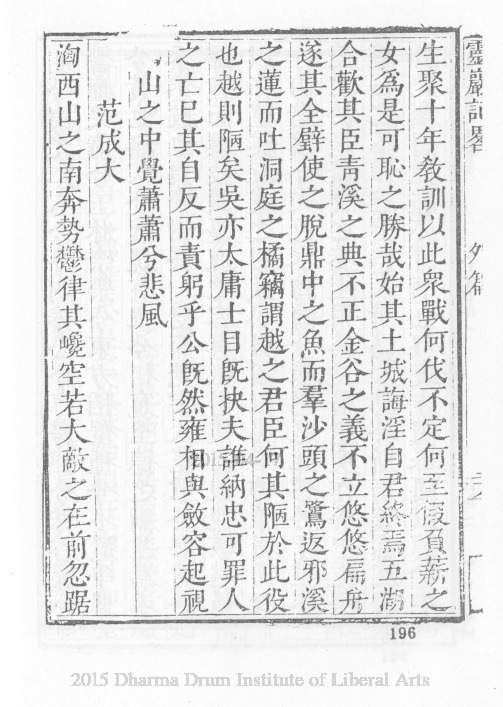 靈巖記畧
外篇
生聚十年敎訓以此衆戰何伐不定何至假負薪之
女爲是可恥之勝哉始其土城誨淫自君終焉五湖
合歡其臣靑溪之典不正金谷之義不立悠悠扁舟
遂其全壁使之脫鼎中之魚而羣沙頭之鷺返邪溪
之蓮而吐洞庭之橘竊謂越之君臣何其陋於此役
也越則陋矣吳亦太庸士目旣抉夫誰納忠可罪人
之亡已其自反而責躬乎公旣然雍相與斂容起視
山之中覺蕭蕭兮悲風
范成大
洶西山之南奔勢鬱律其巉空若大敵之在前忽踞
196
2015 Dharma Drum Institute of Liberal Arts